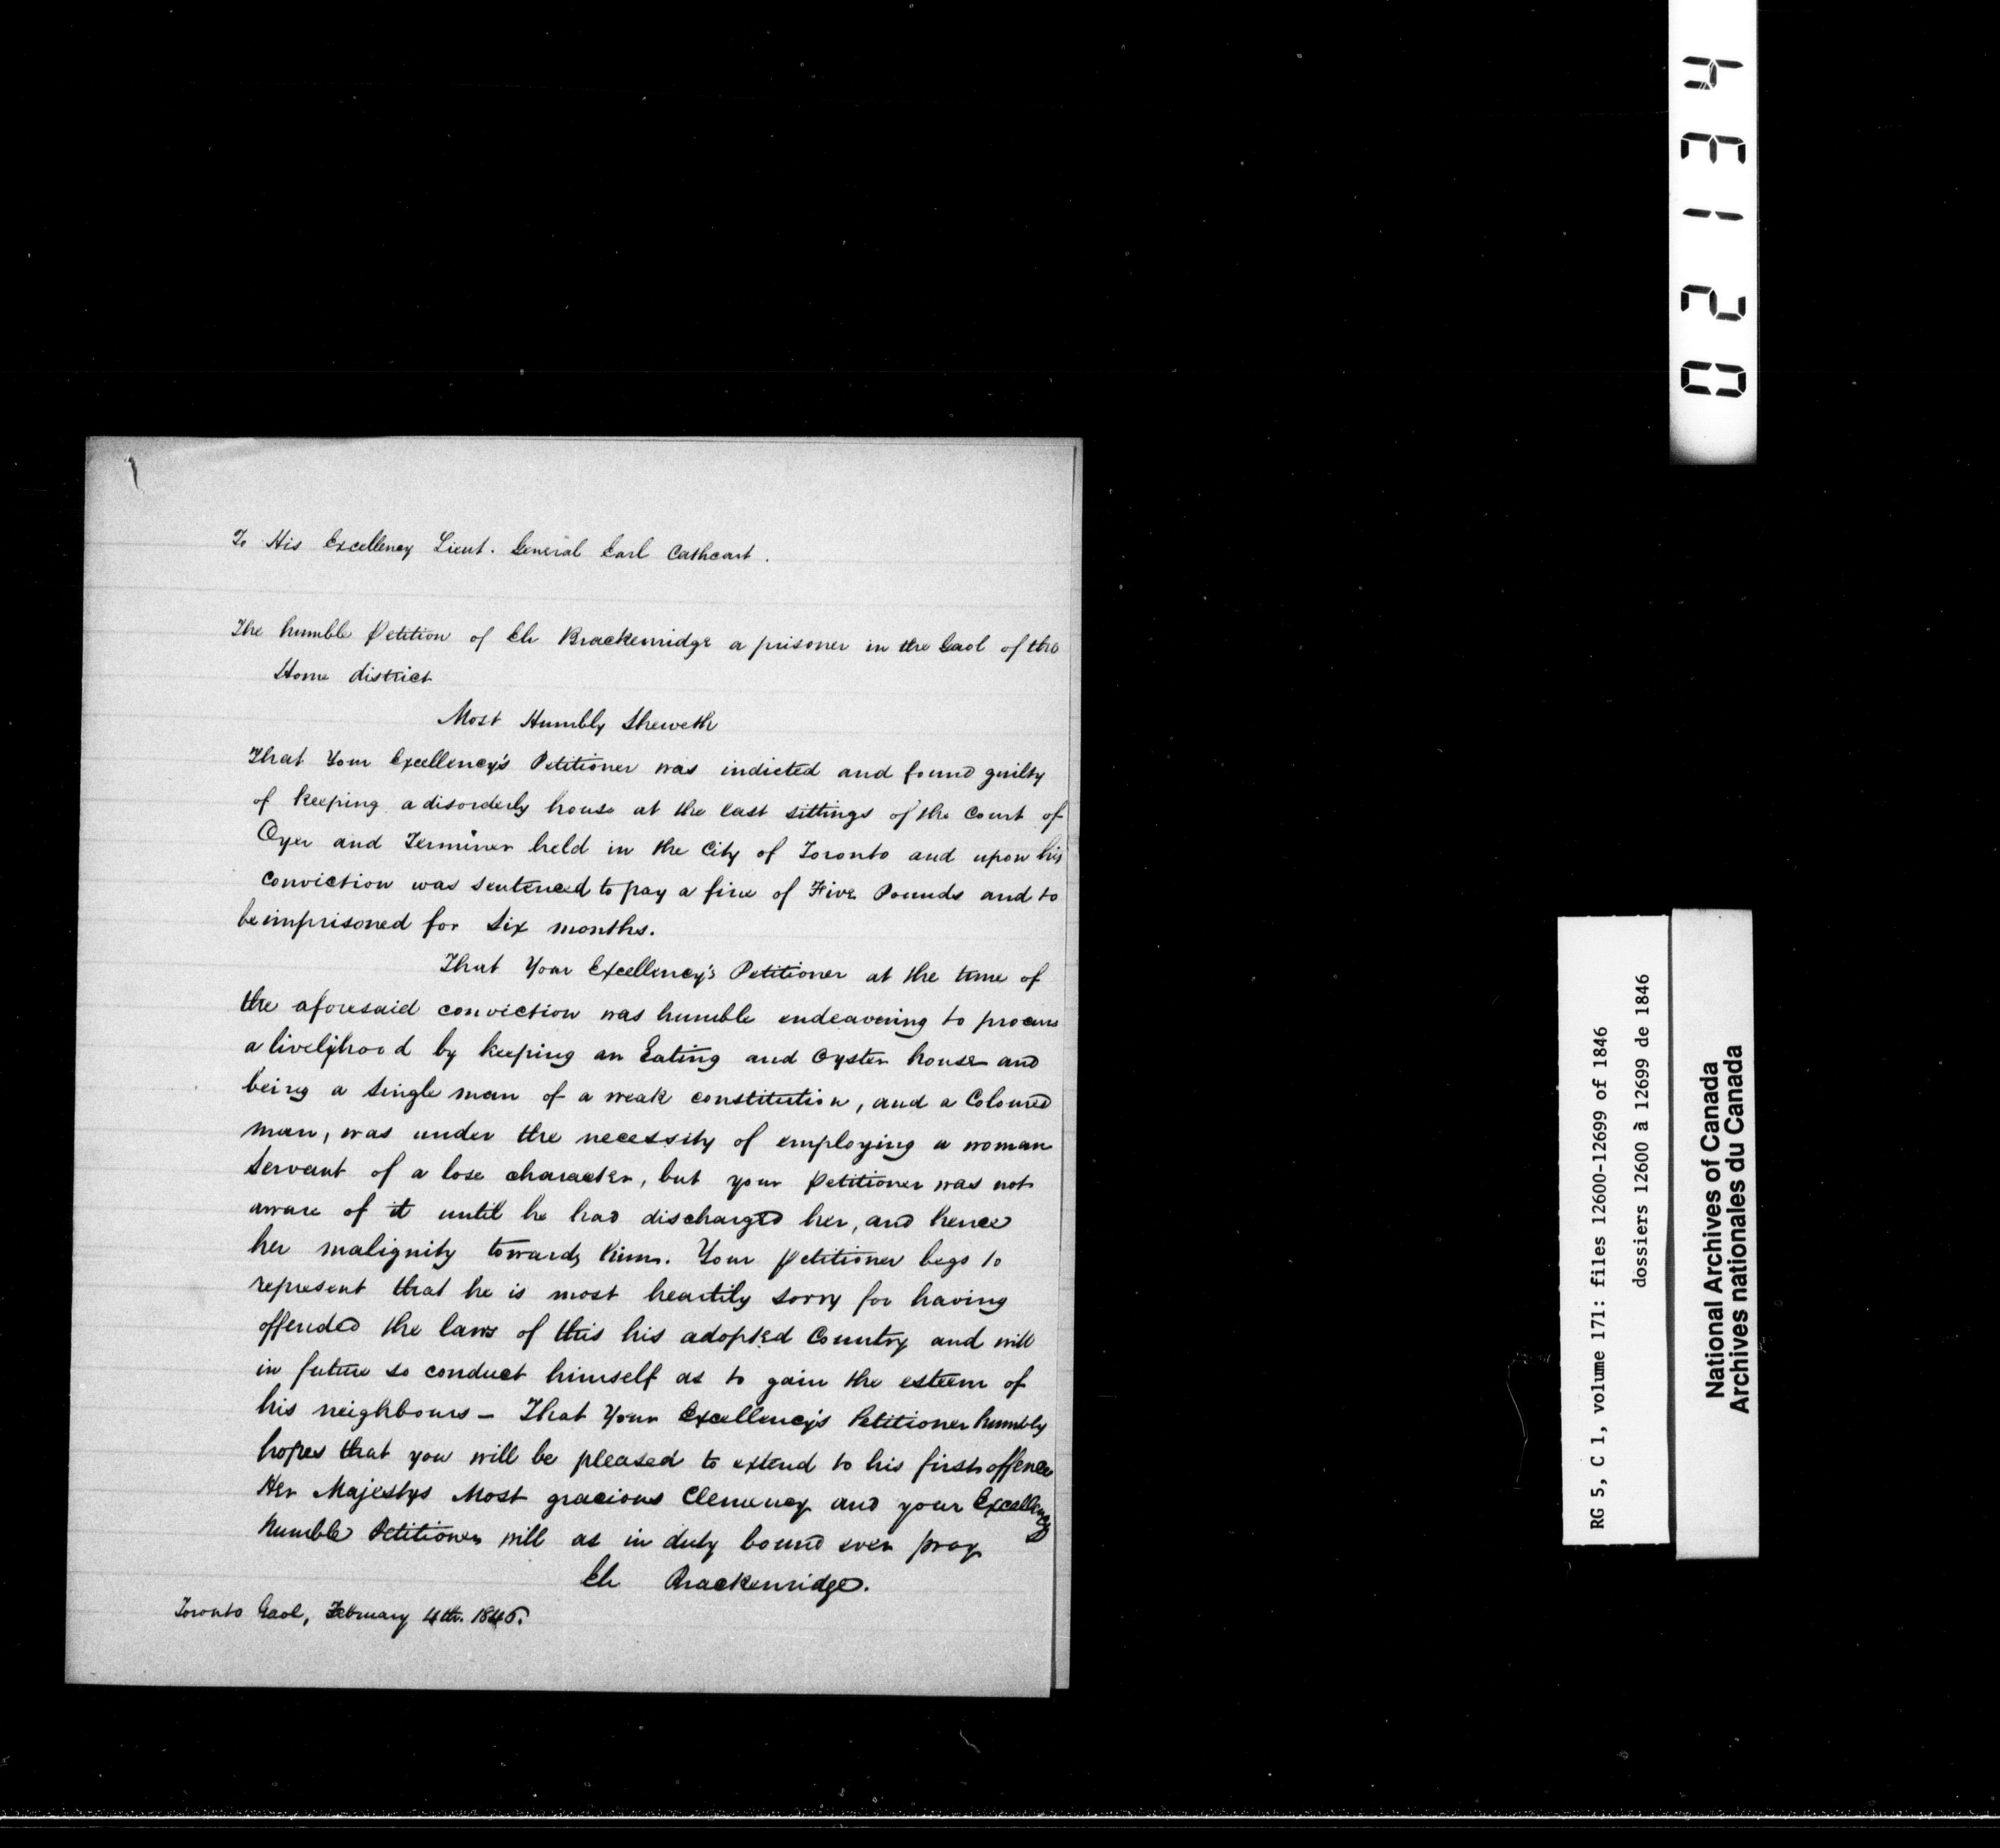 To His Excellency Lieut. General Earl Cathcart.
The humble Petition of Eli Brackenridge a prisoner in the Gaol of the
Home district
Most Humbly Sheweth
That Your Excellency's Petitioner was indicted and found guilty
of keeping a disorderly house at the last sittings of the Court of
Oyer and Terminer held in the City of Toronto and upon his
conviction was sentenced to pay a fine of Five Pounds and to
be imprisoned for Six months.
That Your Excellency's Petitioner at the time of
the aforesaid conviction was humble endeavering to procure
a livelihood by keeping an Eating and Oyster house and
being a Single man of a weak constitution, and a Coloured
man, was under the necessity of employing a woman
Servant of a lose character, but your Petitioner was not
aware of it until he had discharged her, and hence
her malignity towards him. Your Petitioner begs to
represent that he is most heartily sorry for having
offended the laws of this his adopted Country and will
in future so conduct himself as to gain the esteem of
his neighbours – That Your Excellency's Petitioner humbly
hopes that you will be pleased to extend to his first offence
Her Majestys Most gracious Clemency and your Excellencys
humble Petitioner will as in duty bound ever pray
Eli Brackenridge.
Toronto Gaol, February 4th. 1846.
02134
RG 5, C 1, volume 171: files 12600-12699 of 1846
dossiers 12600 à 12699 de 1846
National Archives of Canada
Archives nationales du Canada